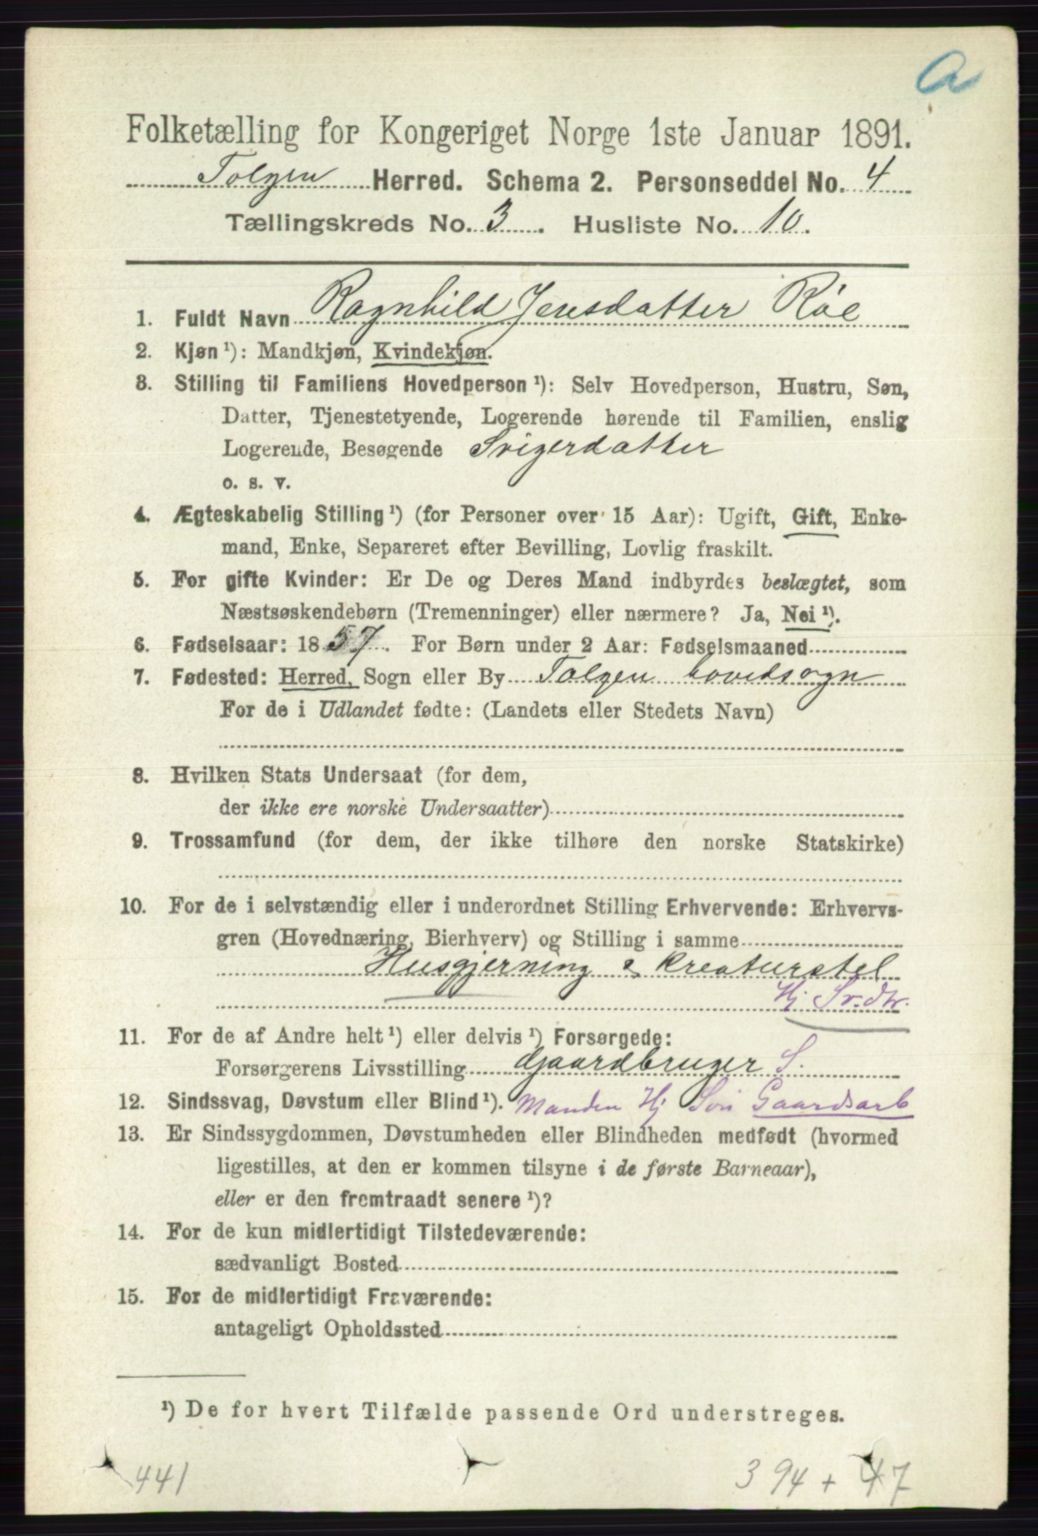 a
Folketælling for Kongeriget Norge 1ste Januar 1891.
Tolgen Herred. Schema 2. Personseddel No. 4
Tællingskreds No. 3. Husliste No. 10.
1. Fuldt Navn Ragnhild Jensdatter Røe
2. Kjøn ¹): Mandkjøn, Kvindekjøn.
3. Stilling til Familiens Hovedperson ¹): Selv Hovedperson, Hustru, Søn,
Datter, Tjenestetyende, Logerende hørende til Familien, enslig
Logerende, Besøgende Svigerdatter
o. s. v.
4. Ægteskabelig Stilling ¹) (for Personer over 15 Aar): Ugift, Gift, Enke-
mand, Enke, Separeret efter Bevilling, Lovlig fraskilt.
5. For gifte Kvinder: Er De og Deres Mand indbyrdes beslægtet, som
Næstsøskendebørn (Tremenninger) eller nærmere? Ja, Nei ¹).
6. Fødselsaar: 1857. For Børn under 2 Aar: Fødselsmaaned
7. Fødested: Herred, Sogn eller By Tolgen hovedsogn
For de i Udlandet fødte: (Landets eller Stedets Navn)
8. Hvilken Stats Undersaat (for dem,
der ikke ere norske Undersaatter)
9. Trossamfund (for dem, der ikke tilhøre den norske Statskirke)
10. For de i selvstændig eller i underordnet Stilling Erhvervende: Erhvervs-
gren (Hovednæring, Bierhverv) og Stilling i samme
Husgjerning & kreaturstel
Hj Sv.dtr.
11. For de af Andre helt ¹) eller delvis ¹) Forsørgede:
Forsørgerens Livsstilling Gaardbruger S.
12. Sindssvag, Døvstum eller Blind ¹). Manden Hj Søn Gaardsarb
13. Er Sindssygdommen, Døvstumheden eller Blindheden medfødt (hvormed
ligestilles, at den er kommen tilsyne i de første Barneaar),
eller er den fremtraadt senere ¹)?
14. For de kun midlertidigt Tilstedeværende:
sædvanligt Bosted
15. For de midlertidigt Fraværende:
antageligt Opholdssted
¹) De for hvert Tilfælde passende Ord understreges.
441
394 + 47